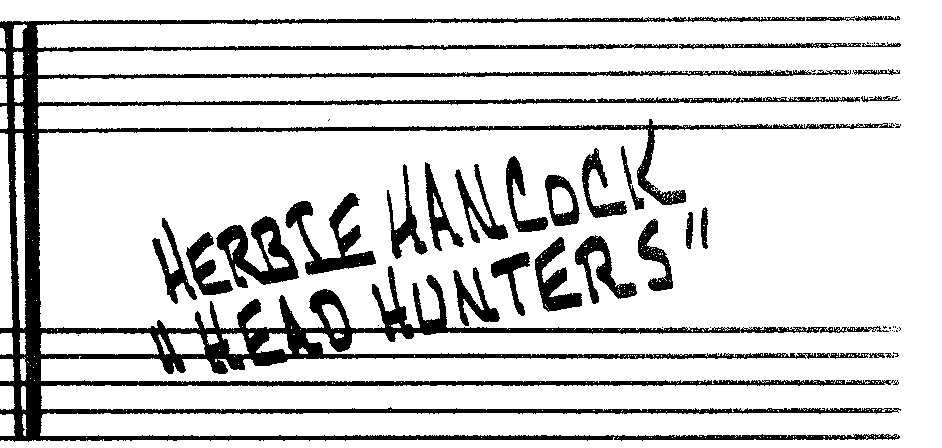 HERBIE HANCOCK
"HEAD HUNTERS"